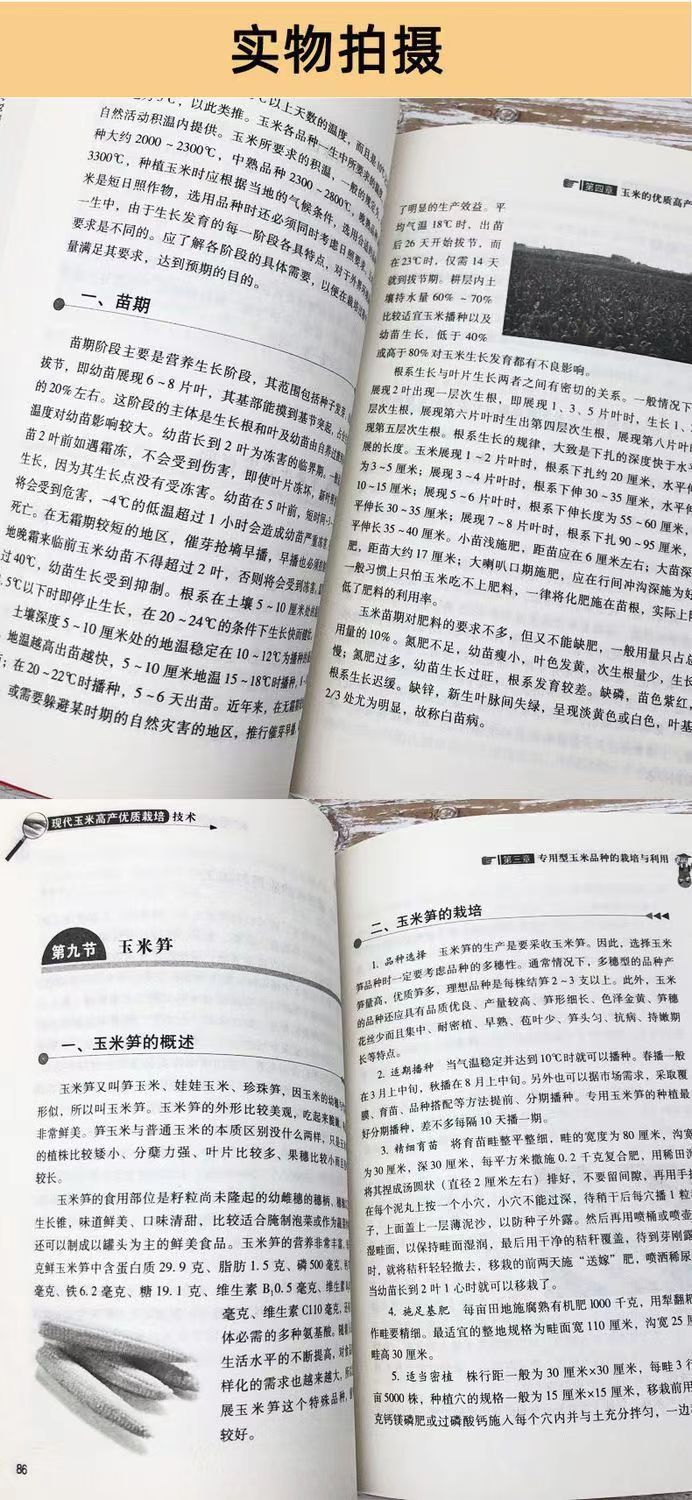 实物拍摄
℃以上天数的温度，而且是
℃，以此类推。玉米各品种一生中所要求的
自然活动积温内提供。玉米所要求的积温，一般的规定
种大约2000～2300℃，中熟品种2300～2800℃，晚熟品种
3300℃，种植玉米时应根据当地的气候条件，选用合适
米是短日照作物，选用品种时还必须同时考虑日照要求。
一生中，由于生长发育的每一阶段各具特点，对于外界环境
要求是不同的。应了解各阶段的具体需要，以便在栽培
量满足其要求，达到预期的目的。
一、苗期
苗期阶段主要是营养生长阶段，其范围包括种子发芽
拔节，即幼苗展现6～8片叶，其基部能摸到基节突起，占全生
的20%左右。这阶段的主体是生长根和叶及幼苗由自养过渡
温度对幼苗影响较大。幼苗长到2叶为冻害的临界期，一般
苗2叶前如遇霜冻，不会受到伤害，即使叶片冻坏，新叶照
生长，因为其生长点没有受冻害。幼苗在5叶前，短时间
将会受到危害，-4℃的低温超过1小时会造成幼苗严重冻害
死亡。在无霜期较短的地区，催芽抢墒早播，早播也必须
地晚霜来临前玉米幼苗不得超过2叶，否则将会受到冻害。
过40℃，幼苗生长受到抑制。根系在土壤5～10厘米处的
5℃以下时即停止生长，在20～24℃的条件下生长快而健壮
土壤深度5～10厘米处的地温稳定在10～12℃为播种
地温越高出苗越快，5～10厘米地温15～18℃时播种，
；在20～22℃时播种，5～6天出苗。近年来，在无霜期
或需要躲避某时期的自然灾害的地区，推行催芽早播，
第四章 玉米的优质高产
了明显的生产效益。平
均气温18℃时，出苗
后26天开始拔节，而
在23℃时，仅需14天
就到拔节期。耕层内土
壤持水量60%～70%
比较适宜玉米播种以及
幼苗生长，低于40%
或高于80%对玉米生长发育都有不良影响。
根系生长与叶片生长两者之间有密切的关系。一般情况下
展现2叶出现一层次生根，即展现1、3、5片叶时，生长1、2
层次生根，展现第六片叶时生出第四层次生根，展现第八片叶时
现第五层次生根。根系生长的规律，大致是下扎的深度快于水
展的长度。玉米展现1～2片叶时，根系下扎约20厘米，水平伸
为3～5厘米；展现3～4片叶时，根系下伸30～35厘米，水平伸
10～15厘米；展现5～6片叶时，根系下伸长度为55～60厘米，
平伸长30～35厘米；展现7～8片叶时，根系下扎90～95厘米，
平伸长35～40厘米。小苗浅施肥，距苗应在6厘米左右；大苗深
肥，距苗大约17厘米；大喇叭口期施肥，应在行间冲沟深施为好
一般习惯上只怕玉米吃不上肥料，一律将化肥施在苗根，实际上降
低了肥料的利用率。
玉米苗期对肥料的要求不多，但又不能缺肥，一般用量只占总
用量的10%。氮肥不足，幼苗瘦小，叶色发黄，次生根量少，生长
慢；氮肥过多，幼苗生长过旺，根系发育较差。缺磷，苗色紫红，
根系生长迟缓。缺锌，新生叶脉间失绿，呈现淡黄色或白色，叶基
2/3处尤为明显，故称白苗病。
现代玉米高产优质栽培 技术
第九节 玉米笋
一、玉米笋的概述
玉米笋又叫笋玉米、娃娃玉米、珍珠笋，因玉米的幼穗
形似，所以叫玉米笋。玉米笋的外形比较美观，吃起来
非常鲜美。笋玉米与普通玉米的本质区别没什么两样，只是
的植株比较矮小、分蘖力强、叶片比较多、果穗比较小而
较长。
玉米笋的食用部位是籽粒尚未隆起的幼雌穗的穗柄、
生长锥，味道鲜美、口味清甜，比较适合腌制泡菜或作为蔬菜
还可以制成以罐头为主的鲜美食品。玉米笋的营养非常丰富，
克鲜玉米笋中含蛋白质29.9克、脂肪1.5克、磷500毫克、
毫克、铁6.2毫克、糖19.1克、维生素B₁0.5毫克、维生素
毫克、维生素C110毫克，还
体必需的多种氨基酸。随着
生活水平的不断提高，对食
样化的需求也越来越大，所
展玉米笋这个特殊品种，
较好。
86
第三章 专用型玉米品种的栽培与利用
二、玉米笋的栽培
1. 品种选择 玉米笋的生产是要采收玉米笋。因此，选择玉米
笋品种时一定要考虑品种的多穗性。通常情况下，多穗型的品种产
笋量高，优质笋多，理想品种是每株结笋2～3支以上。此外，玉米
的品种还应具有品质优良、产量较高、笋形细长、色泽金黄、笋穗
花丝少而且集中、耐密植、早熟、苞叶少、笋头匀、抗病、持嫩期
长等特点。
2. 适期播种 当气温稳定并达到10℃时就可以播种。春播一般
在3月上中旬，秋播在8月上中旬。另外也可以据市场需求，采取覆
膜、育苗、品种搭配等方法提前、分期播种。专用玉米笋的种植最
好分期播种，差不多每隔10天播一期。
3. 精细育苗 将育苗畦整平整细，畦的宽度为80厘米，沟宽
为30厘米，深30厘米，每平方米撒施0.2千克复合肥，用稀田泥
将其捏成汤圆状（直径2厘米左右）排好，不要留间隙，再用手指
在每个泥丸上按一个小穴，小穴不能过深，待稍干后每穴播1粒
子，上面盖上一层薄泥沙，以防种子外露。然后再用喷桶或喷壶
湿畦面，以保持畦面湿润，最后用干净的秸秆覆盖，待到芽刚露
时，就将秸秆轻轻撤去，移栽的前两天施“送嫁”肥，喷洒稀尿
当幼苗长到2叶1心时就可以移栽了。
4. 施足基肥 每亩田地施腐熟有机肥1000千克，用犁翻耙
作畦要精细。最适宜的整地规格为畦面宽110厘米，沟宽25厘
畦高30厘米。
5. 适当密植 株行距一般为30厘米×30厘米，每畦3行
亩5000株，种植穴的规格一般为15厘米×15厘米，移栽前用
克钙镁磷肥或过磷酸钙施入每个穴内并与土充分拌匀，一边